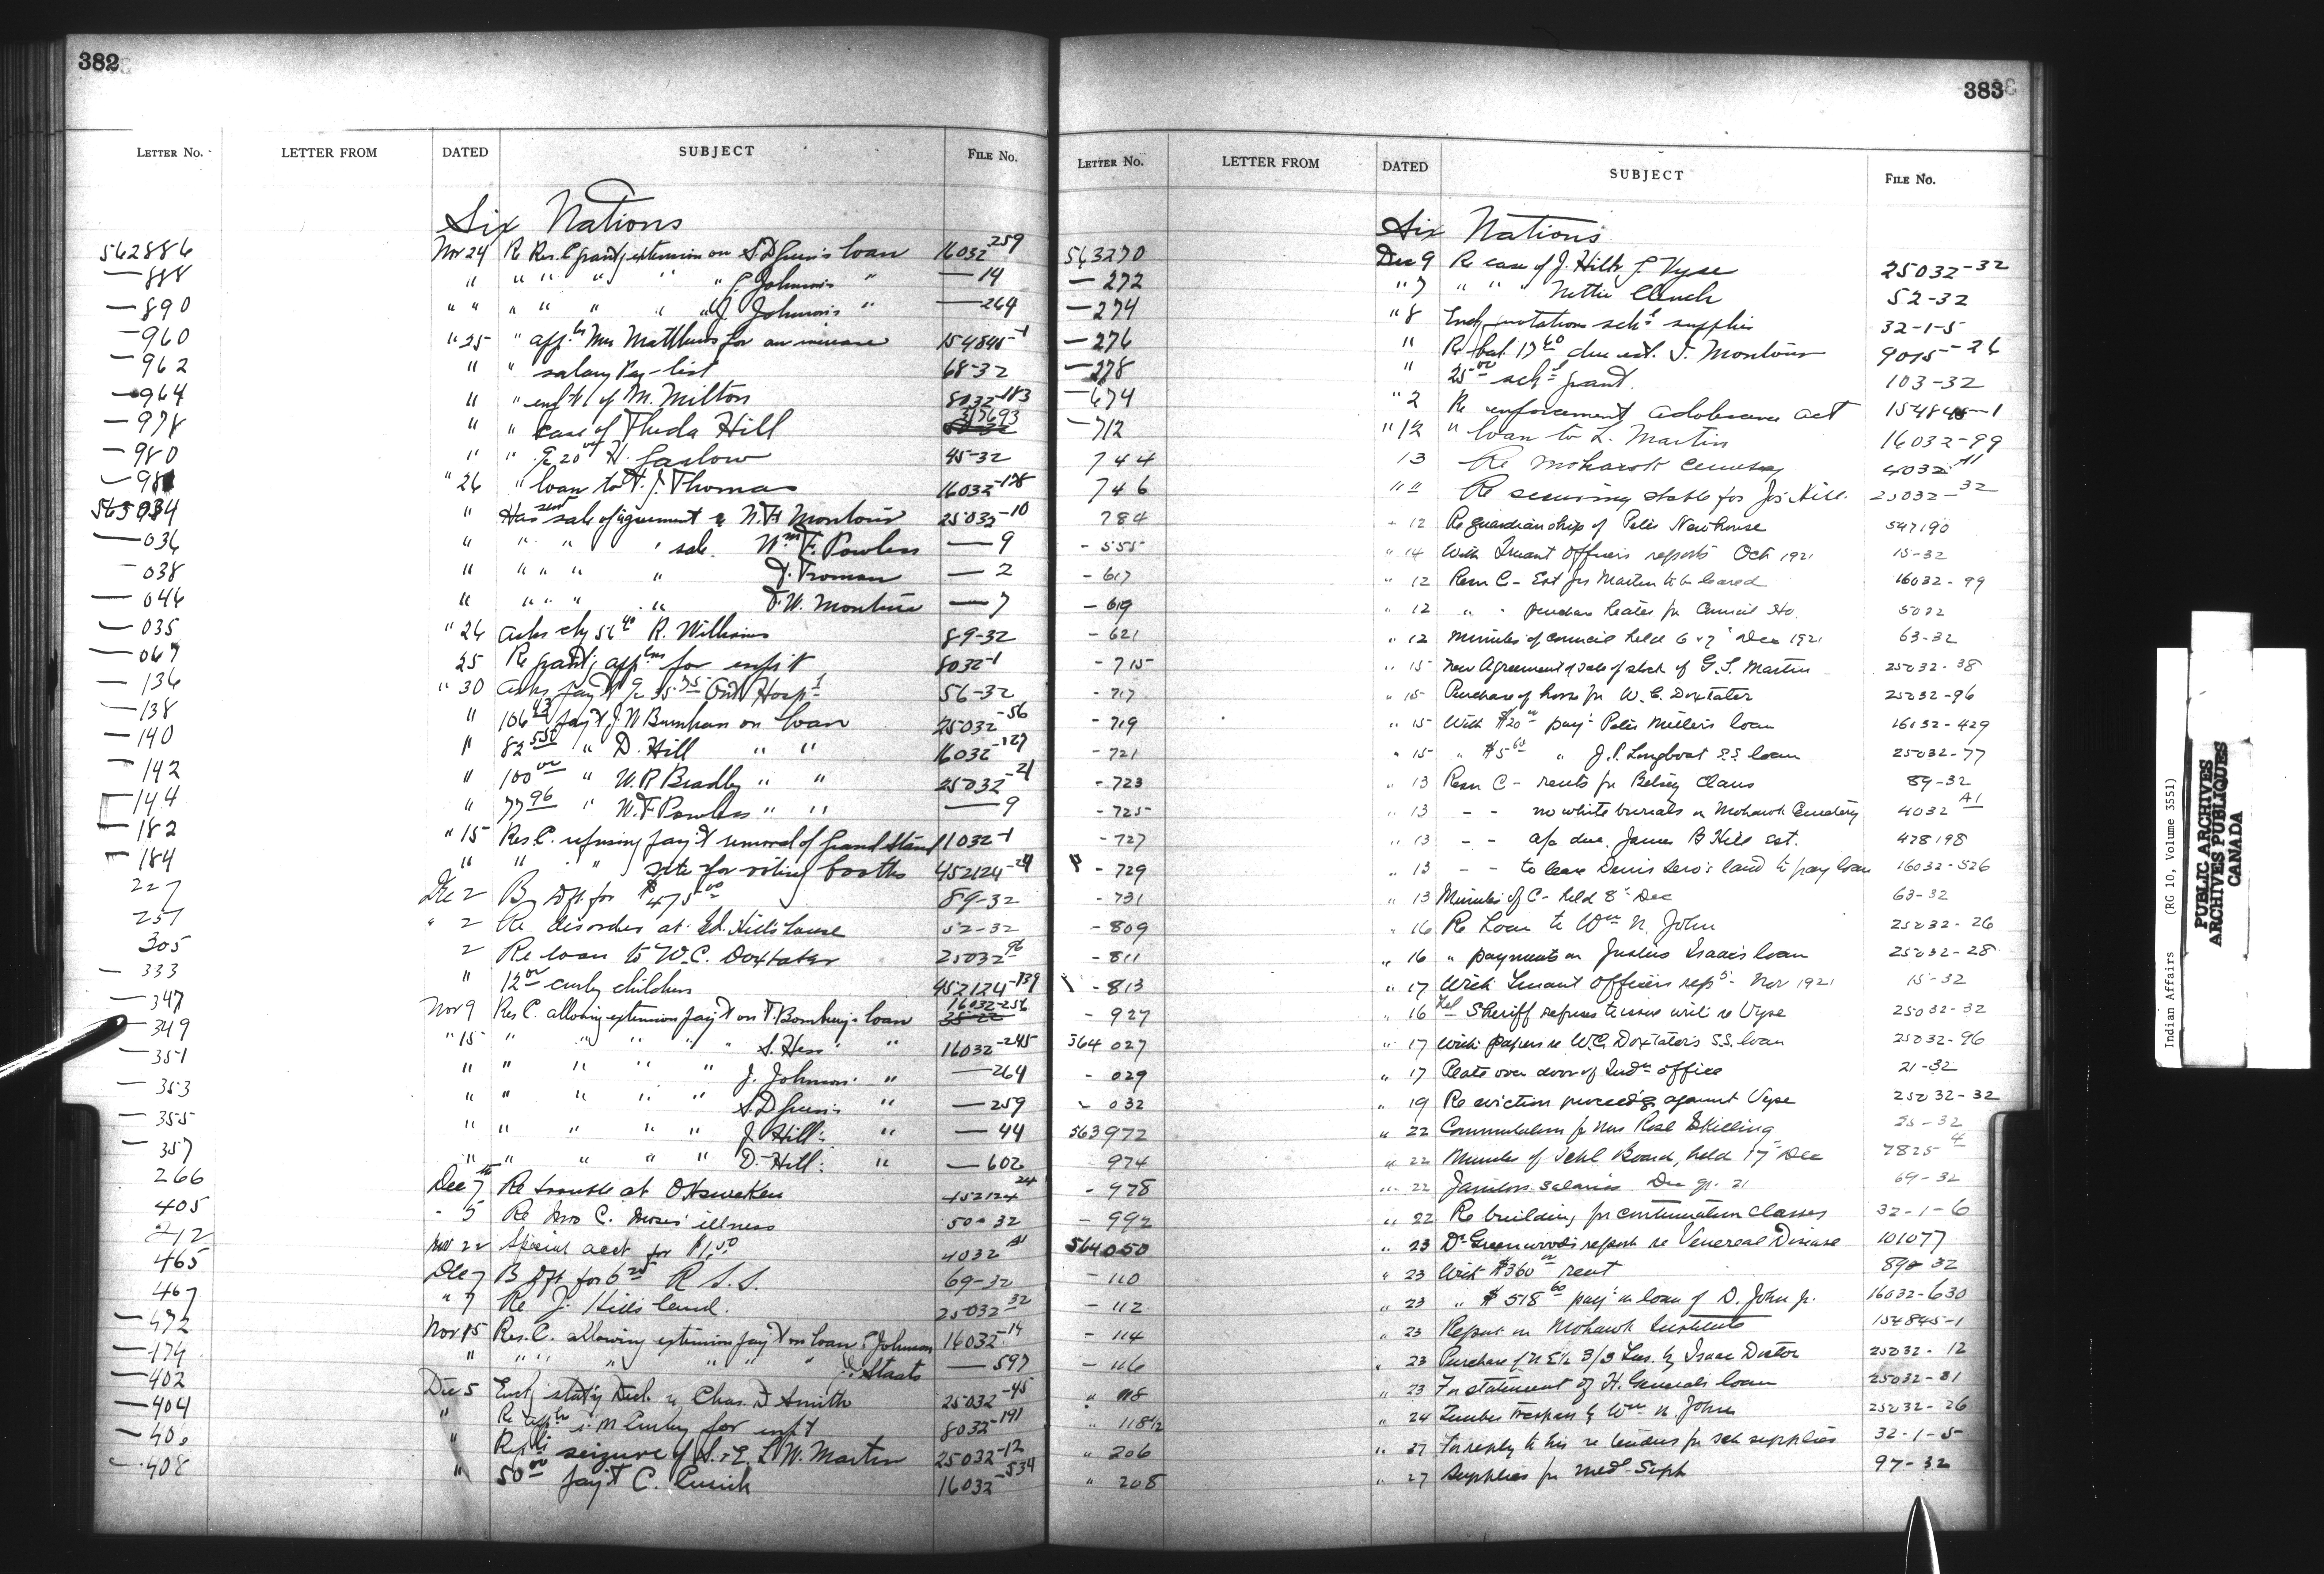 382
LETTER NO. LETTER FROM DATED SUBJECT FILE NO.
Six Nations
562886 Nov 24 Re Res. C grant'g extension on S. D Green's loan 16032-259
— 888 " " " " " " Johnson's " — 14
— 890 " " " " " " J. Johnson's " — 264
— 960 " 25 " app. Mrs Matthews for an increase 154845-1
— 962 " " salary Pay-list 68-32
— 964 " " enf't of M. Milton 8032-183
— 978 " " case of Theda Hill 317693
— 980 " " 20 H. Garlow 45-32
" 26 " loan to F. J. Thomas 16032-178
" Has sent sale of agreement N. H Montour 25032-10
— 036 " " " " sale Wm F. Powless — 9
— 038 " " " " " J. Froman — 2
— 044 " " " " " F. W. Monture — 7
— 035 " 26 Asks chq 56 40 R. Williams 8-9-32
— 067 25 Re grant'g app for enf't 8032-1
— 136 " 30 Asks pay't 35.75 Ont Hosp'l 56-32
— 138 " 106 43 pay't J. W Burnham on loan 25032-56
— 140 " 82 55 " D. Hill " " 16032-127
— 142 " 100 00 " W. R Bradley " " 25032-21
— 144 " 77 96 " W. F Powless " " — 9
— 182 " 15 Res. C. refusing pay't removal of Grand Stand 11032-1
— 184 " " " site for voting booths 452124-24
227 Dec 2 B Dft. for $475 00 89-32
251 " 2 Re disorder at Ed. Hill's house 52-32
305 2 Re loan to W. C. Doxtater 25032 96
— 333 " 12 00 curly children 452124-139
— 347 Nov 9 Res C. allowing extension pay't on T. Bomberry's loan 16032-256
— 349 " 15 " " " " " S. Hess " " 16032-245
— 351 " " " " " " J. Johnson's " — 264
— 353 " " " " " " S. D Green's " — 259
— 355 " " " " " " J. Hill's " — 44
— 357 " " " " " " D. Hill's " — 602
266 Dec 7th Re trouble at Ohsweken 452124 24
405 - 5 Re Jno C. Moses' illness 50-32
212 Nov 22 Special acct for $1.50 4032 A1
465 Dec 7 B Dft. for 6 25 R. S. S. 69-32
467 " 7 Re J. Hill's land. 25032 32
— 472 Nov 15 Res. C. allowing extension pay't on loan Johnson 16032-14
— 174 " " " " " " " Staats — 597
— 402 Dec 5 Encl'g stat'y Decl. Chas. D Smith 25032-45
— 404 " Re app M Curley for enf't 8032-191
" seizure of W. Martin 25032-12
— 408 " 50 00 pay't C. Cusick 16032-534
383
LETTER NO. LETTER FROM DATED SUBJECT FILE NO.
Six Nations
563270 Dec 9 Re case of J. Hill & Vyse 25032-32
— 272 " 7 " " " Nettie Clench 52-32
— 274 " 8 Encl'g quotations sch'l supplies 32-1-5
— 276 " Re bal. 17 60 due est. J. Montour 9015-26
— 278 " 25 00 sch'l grant. 103-32
— 674 " 2 Re enforcement adolescence act 154845-1
— 712 " 12 " loan to L. Martin 16032-99
744 13 Re Mohawk cemetery 4032 A1
746 " " Re securing stable for Jos. Hill. 25032-32
784 - 12 Re guardianship of Peter Newhouse 547190
- 555 " 14 With Truant Officers reports Oct 1921 15-32
- 617 " 12 Resn C - Est Jos Martin to be leased 16032-99
- 619 " 12 " - purchase heater for Council Ho. 5022
- 621 " 12 Minutes of council held 6 & 7 Dec 1921 63-32
- 715 " 15 New Agreement of sale of stock of G. S. Martin 25032-38
- 717 " 15 Purchase of horse for W. C. Doxtater 25032-96
- 719 " 15 With $20 00 pay't Peter Miller's loan 16032-429
- 721 " 15 " $5 60 " J. P. Longboat S.S. loan 25032-77
- 723 " 13 Resn C - rents for Betsey Claus 89-32
- 725 " 13 - - no white burials in Mohawk Cemetery 4032 A1
- 727 " 13 - - a/c due James B Hill Est. 478198
- 729 " 13 - - to lease Dennis Sero's land to pay loan 16032-526
- 731 " 13 Minutes of C - held 8 Dec 63-32
- 809 " 16 Re Loan to Wm N. John 25032-26
- 811 " 16 " payments on Justus Isaac's loan 25032-28
- 813 " 17 With Truant Officers reps - Nov 1921 15-32
- 927 " 16 Tel Sheriff refuses to issue writ re Vyse 25032-32
564027 " 17 With papers re W.C. Doxtater's S.S. loan 25032-96
- 029 " 17 Plate over door of Indn office 21-32
- 032 " 19 Re eviction proceed'gs against Vyse 25032-32
563972 " 22 Commutation for Mrs Rose Skilling 25-32
974 " 22 Minutes of Schl Board, held 17 Dec 7825 4
- 978 " 22 Janitors Salaries Dec qr. 21 69-32
- 992 " 22 Re building for continuation classes 32-1-6
564050 " 23 Dr Greenwood's report re Venereal Disease 101077
- 110 " 23 With $360 00 rent 89-32
- 112 " 23 " $518 60 pay't on loan of D. John jr. 16032-630
- 114 " 23 Report on Mohawk Institute 154845-1
- 116 " 23 Purchase of N E½ 3/3 Tus. by Isaac Doctor 25032-12
" 118 " 23 For statement of H. General's loan 25032-81
" 118½ " 24 Timber trespass by Wm N. John 25032-26
" 206 " 27 For reply to his re tenders for sch supplies 32-1-5
" 208 " 27 Supplies for Med. Supt 97-32
Indian Affairs (RG 10, Volume 3551)
PUBLIC ARCHIVES
ARCHIVES PUBLIQUES
CANADA